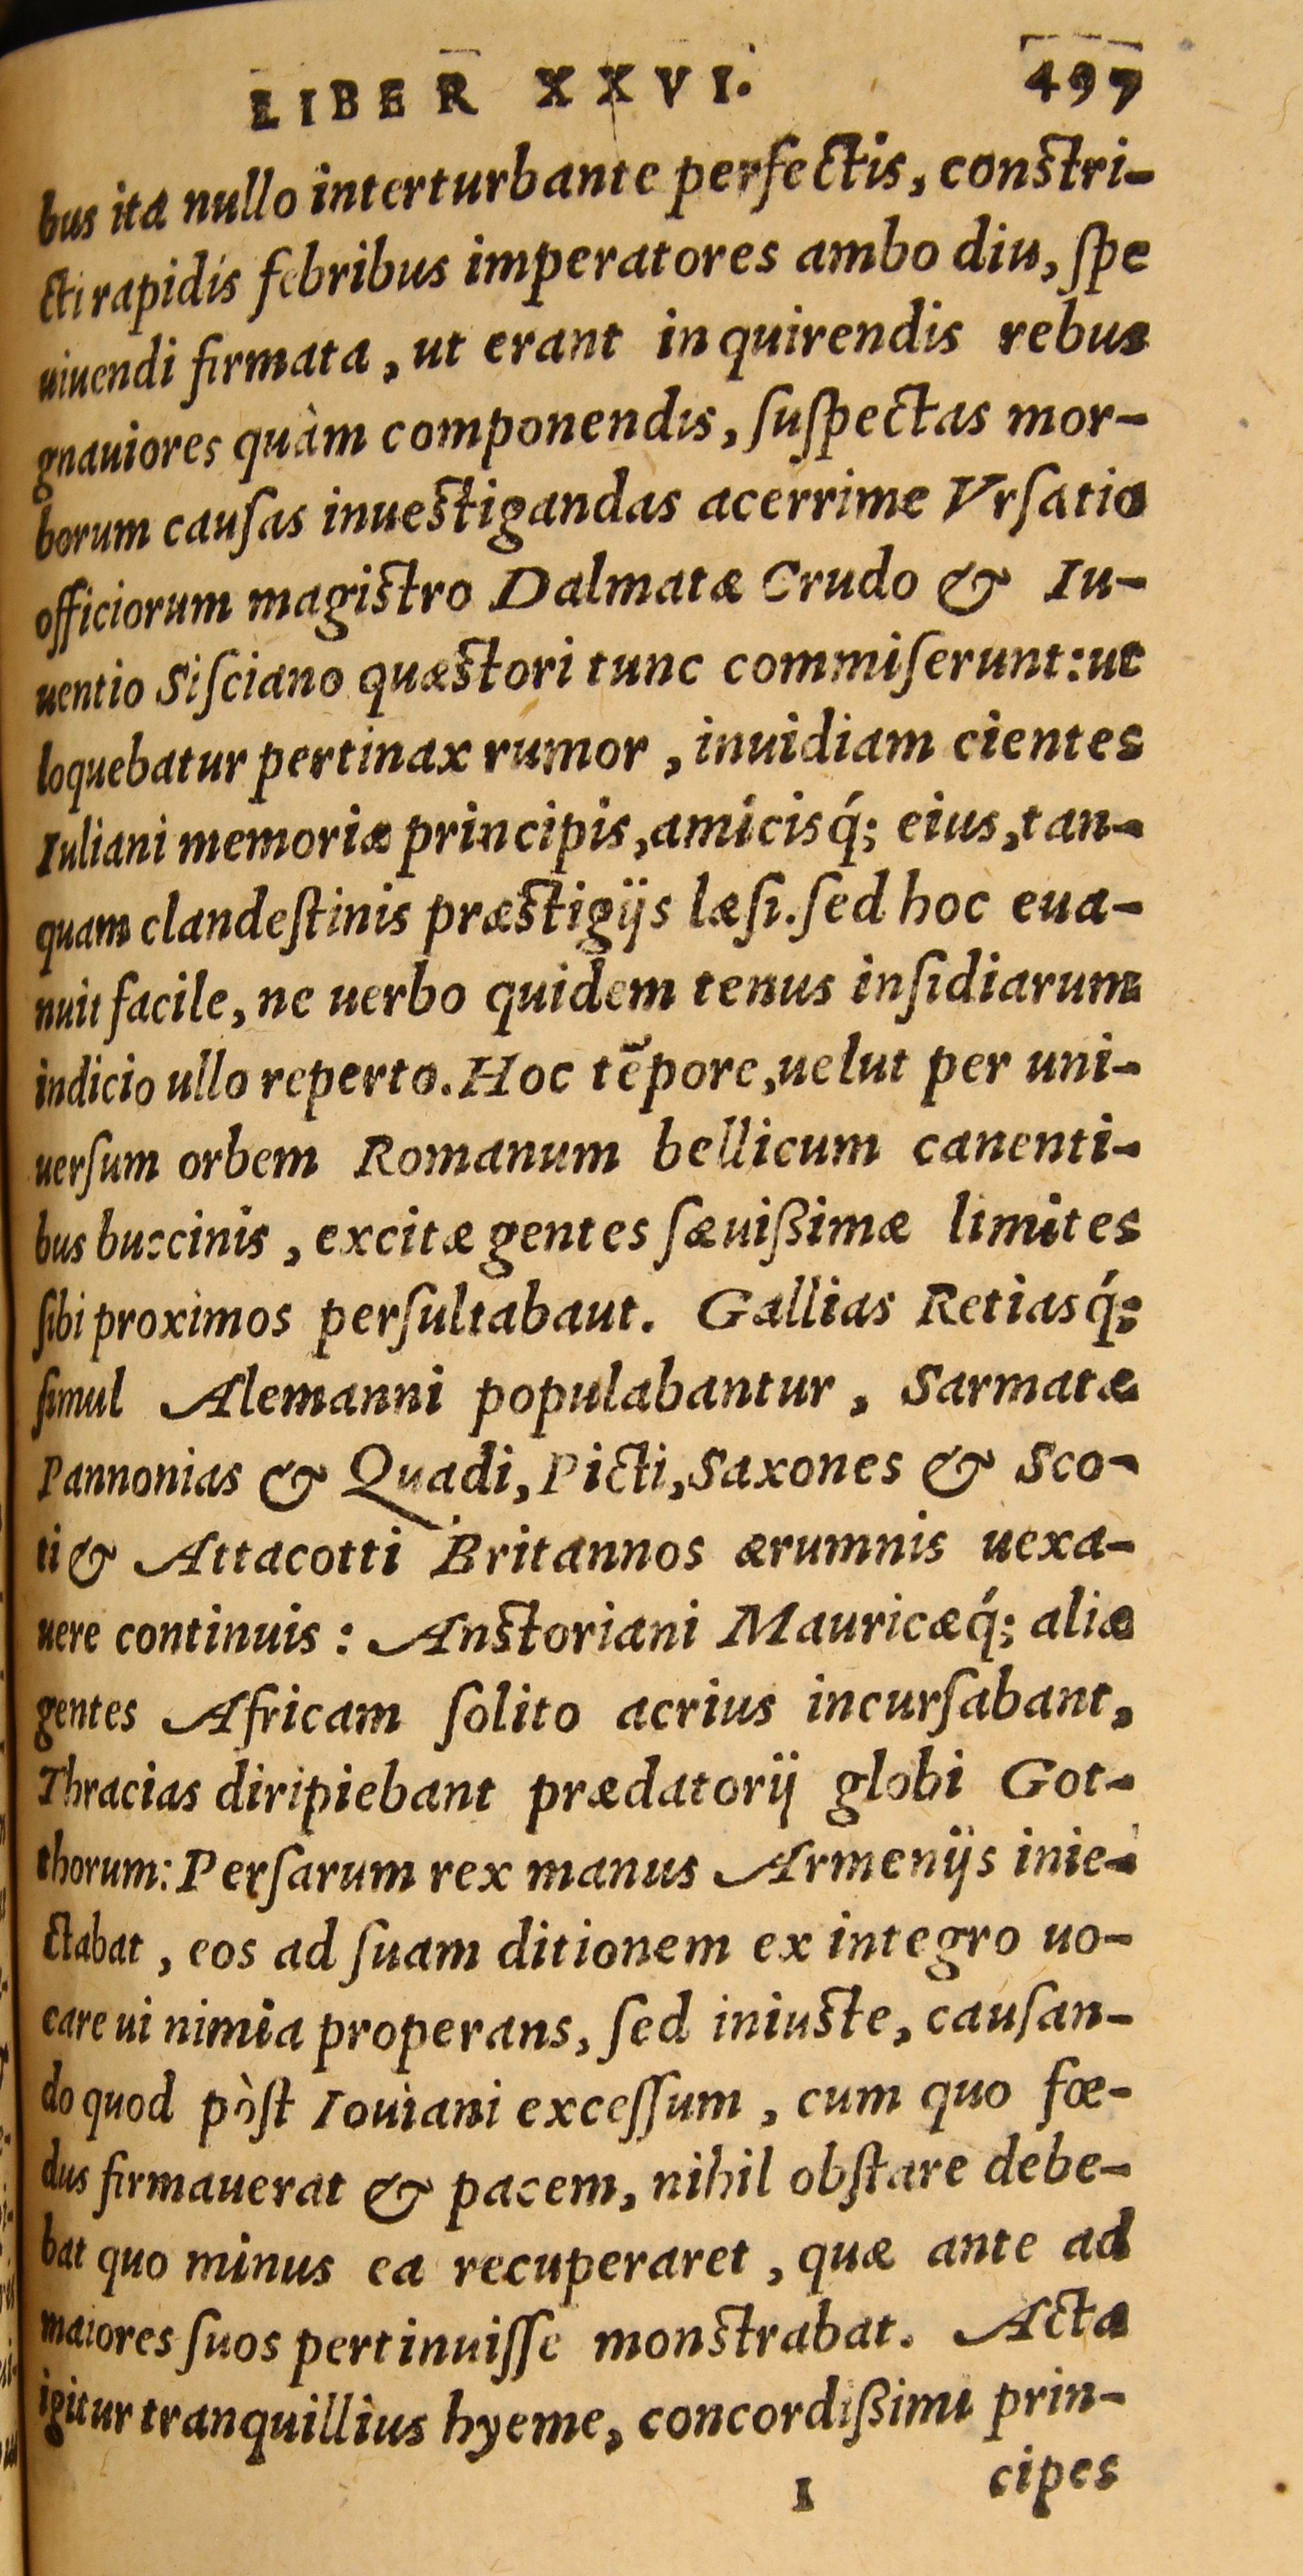 LIBER XXVI. 497
bus ita nullo interturbante perfectis, constri-
cti rapidis febribus imperatores ambo diu, ſpe
uiuendi firmata, ut erant in quirendis rebus
gnauiores quàm componendis, ſuſpectas mor-
borum cauſas inuestigandas acerrime Vrſatio
officiorum magistro Dalmatæ Crudo & Iu-
uentio Siſciano quæstori tunc commiſerunt: ut
loquebatur pertinax rumor, inuidiam cientes
Iuliani memoriæ principis, amicisq́; eius, tan-
quam clandeſtinis præstigijs læſi. ſed hoc eua-
nuit facile, ne uerbo quidem tenus inſidiarum
indicio ullo reperto. Hoc tẽpore, uelut per uni-
uerſum orbem Romanum bellicum canenti-
bus buccinis, excitæ gentes ſæuißimæ limites
ſibi proximos perſultabaut. Gallias Retiasq́;
ſimul Alemanni populabantur, Sarmatæ
Pannonias & Quadi, Picti, Saxones & Sco-
ti & Attacotti Britannos ærumnis uexa-
uere continuis: Anstoriani Mauricæq́; aliæ
gentes Africam ſolito acrius incurſabant,
Thracias diripiebant prædatorij globi Got-
thorum: Perſarum rex manus Armenijs inie-
ctabat, eos ad ſuam ditionem ex integro uo-
care ui nimia properans, ſed iniuste, cauſan-
do quod pòſt Iouiani exceſſum, cum quo fœ-
dus firmauerat & pacem, nihil obſtare debe-
bat quo minus ea recuperaret, quæ ante ad
maiores ſuos pertinuiſſe monstrabat. Acta
igitur tranquillius hyeme, concordißimi prin-
I cipes